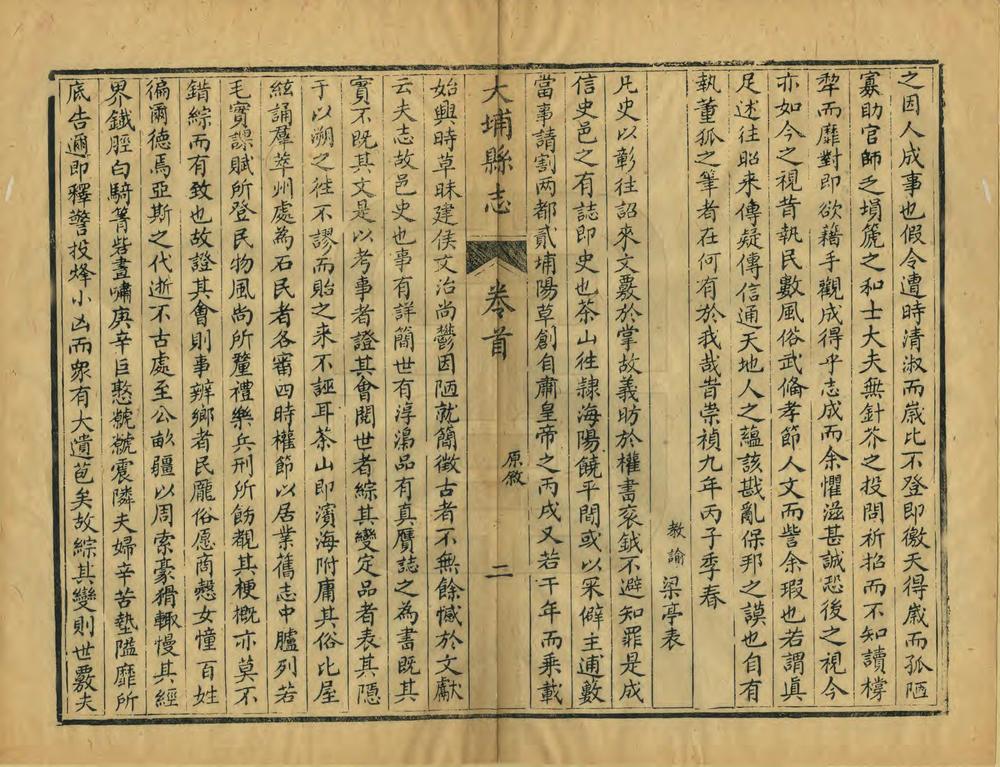 之因人成事也假令遭時清淑而嵗比不登即徼天得嵗而孤陋
寡助官師乏塤篪之和士大夫無針芥之投問祈招而不知讀檮
犂而靡對即欲藉手觀成得乎志成而余懼滋甚誠恐後之視今
亦如今之視昔執民數風俗武俻孝節人文而訾余瑕也若謂眞
足述往昭来傳疑傳信通天地人之蘊該戡亂保邦之謨也自有
執董狐之筆者在何有於我哉旹崇禎九年丙子季春
教諭梁亭表
凡史以彰往詔來文覈於掌故義昉於權書衮鉞不避知罪是成
信史邑之有誌即史也茶山往隷海陽饒平間或以采僻主逋藪
當事請割两都貳埔陽草創自肅皇帝之丙戌又若干年而乘載
大埔縣志 卷首 原敘 二
始興時草昧建侯文治尚鬱因陋就簡徵古者不無餘憾於文獻
云夫志故邑史也事有詳簡世有淳澆品有真贋誌之為書既其
實不既其文是以考事者證其會閱世者綜其變定品者表其隠
于以溯之往不謬而貽之来不誣耳茶山即濱海附庸其俗比屋
絃誦羣萃州處為石民者各審四時權節以居業舊志中臚列若
毛實課賦所登民物風尚所釐禮樂兵刑所飭覩其梗概亦莫不
錯綜而有致也故證其會則事辨鄉者民龎俗愿商慤女憧百姓
徧爾德焉亞斯之代逝不古處至公畝疆以周索豪猾輙慢其經
界鐵脛白騎箐砦晝嘯庚辛巨憝虩虩震隣夫婦辛苦墊隘靡所
底告邇即釋警投烽小凶而眾有大遺芭矣故綜其變則世覈夫